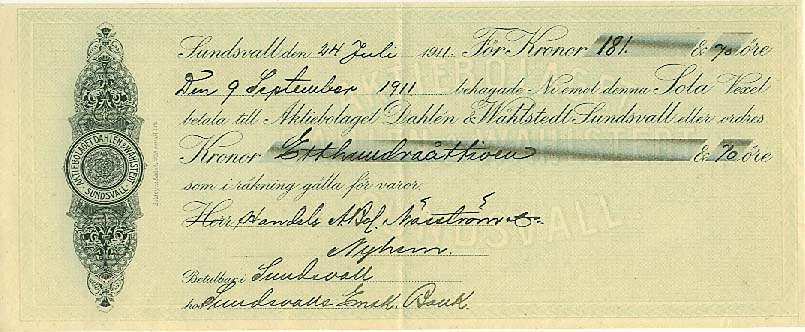 Sundsvall den 24 Juli 1911. För Kronor 181. & 70 öre
Den 9 September 1911 behagade Ni emot denna Sola Vexel
betala till Aktiebolaget Dahlén & Wahlstedt, Sundsvall eller ordres
Kronor Etthundraåttioen & 70 öre
som i räkning gälla för varor.
Herr Handels A.Bol. Näsström &
Nyhem.
Betalbar i Sundsvall
hos Sundsvalls Ensk. Bank.
AKTIEBOLAGET DAHLÉN & WAHLSTEDT
SUNDSVALL